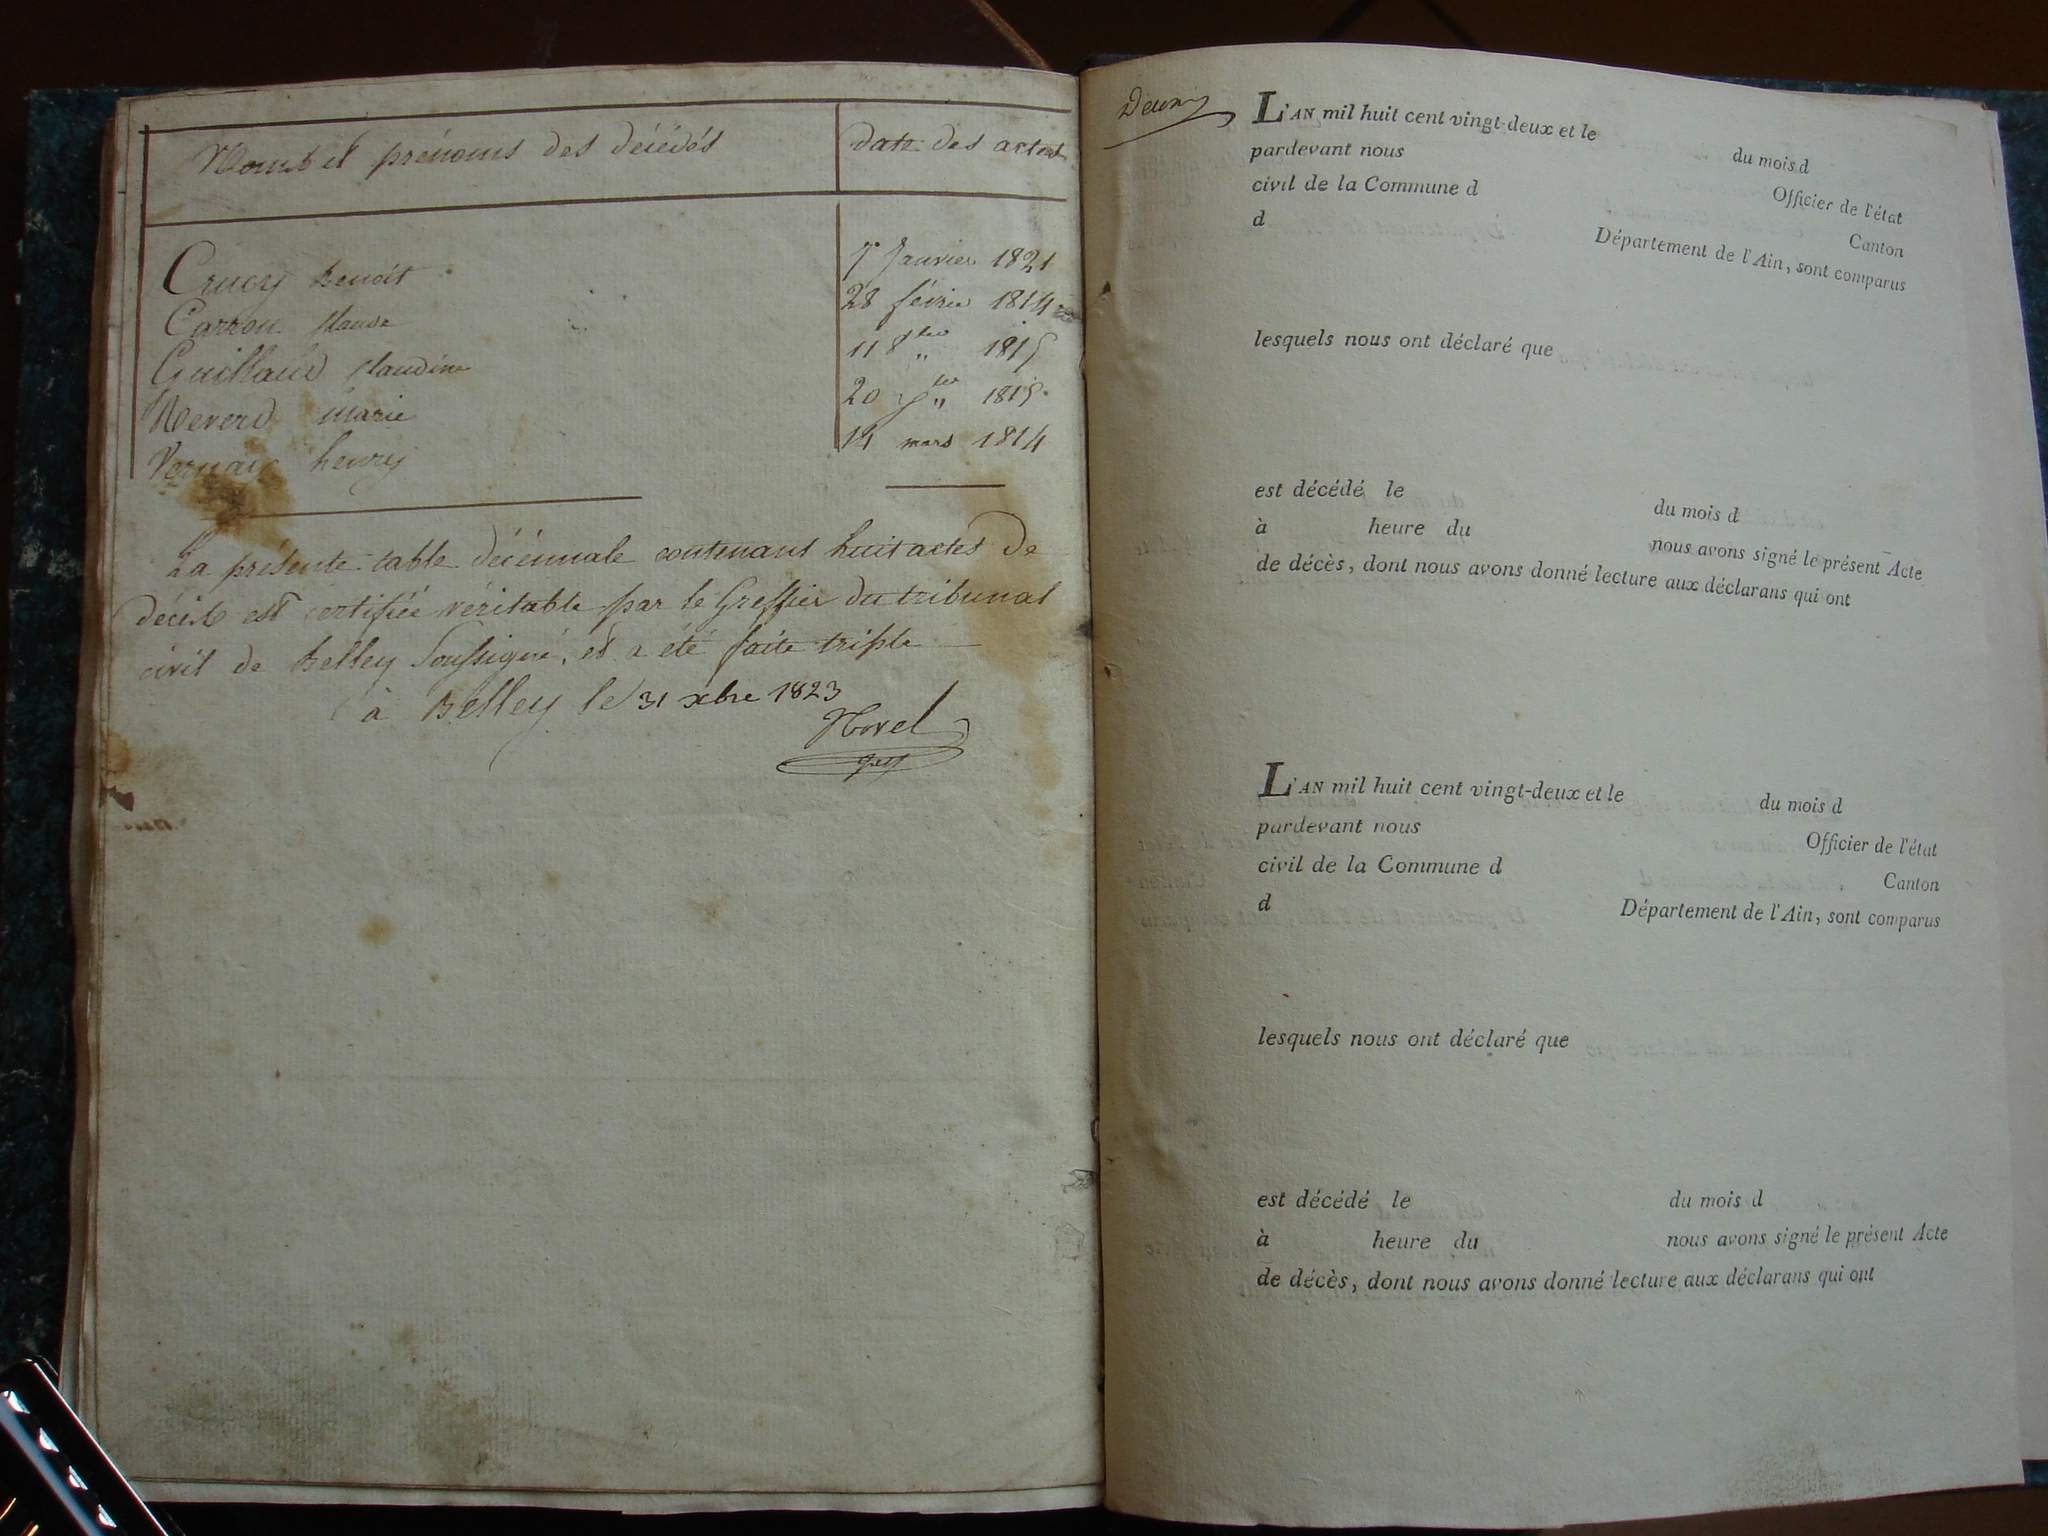 Noms et prénoms des décédés
date des actes
Crucy Benoit
7 Janvier 1821
Carron Claude
28 février 1814
Guillaud Claudine
11 8bre 1815
Neverd Marie
20 1815
Vernay henry
14 mars 1814
La présente table décennale contenant huit actes de
décès est certifiée véritable par le Greffier du tribunal
civil de Belley Soussigné, et a été faite triple
à Belley le 31 xbre 1823
Morel
Deux
L'AN mil huit cent vingt-deux et le du mois d
pardevant nous Officier de l'état
civil de la Commune d Canton
d Département de l'Ain, sont comparus
lesquels nous ont déclaré que
est décédé le du mois d
à heure du nous avons signé le présent Acte
de décès, dont nous avons donné lecture aux déclarans qui ont
L'AN mil huit cent vingt-deux et le du mois d
pardevant nous Officier de l'état
civil de la Commune d Canton
d Département de l'Ain, sont comparus
lesquels nous ont déclaré que
est décédé le du mois d
à heure du nous avons signé le présent Acte
de décès, dont nous avons donné lecture aux déclarans qui ont